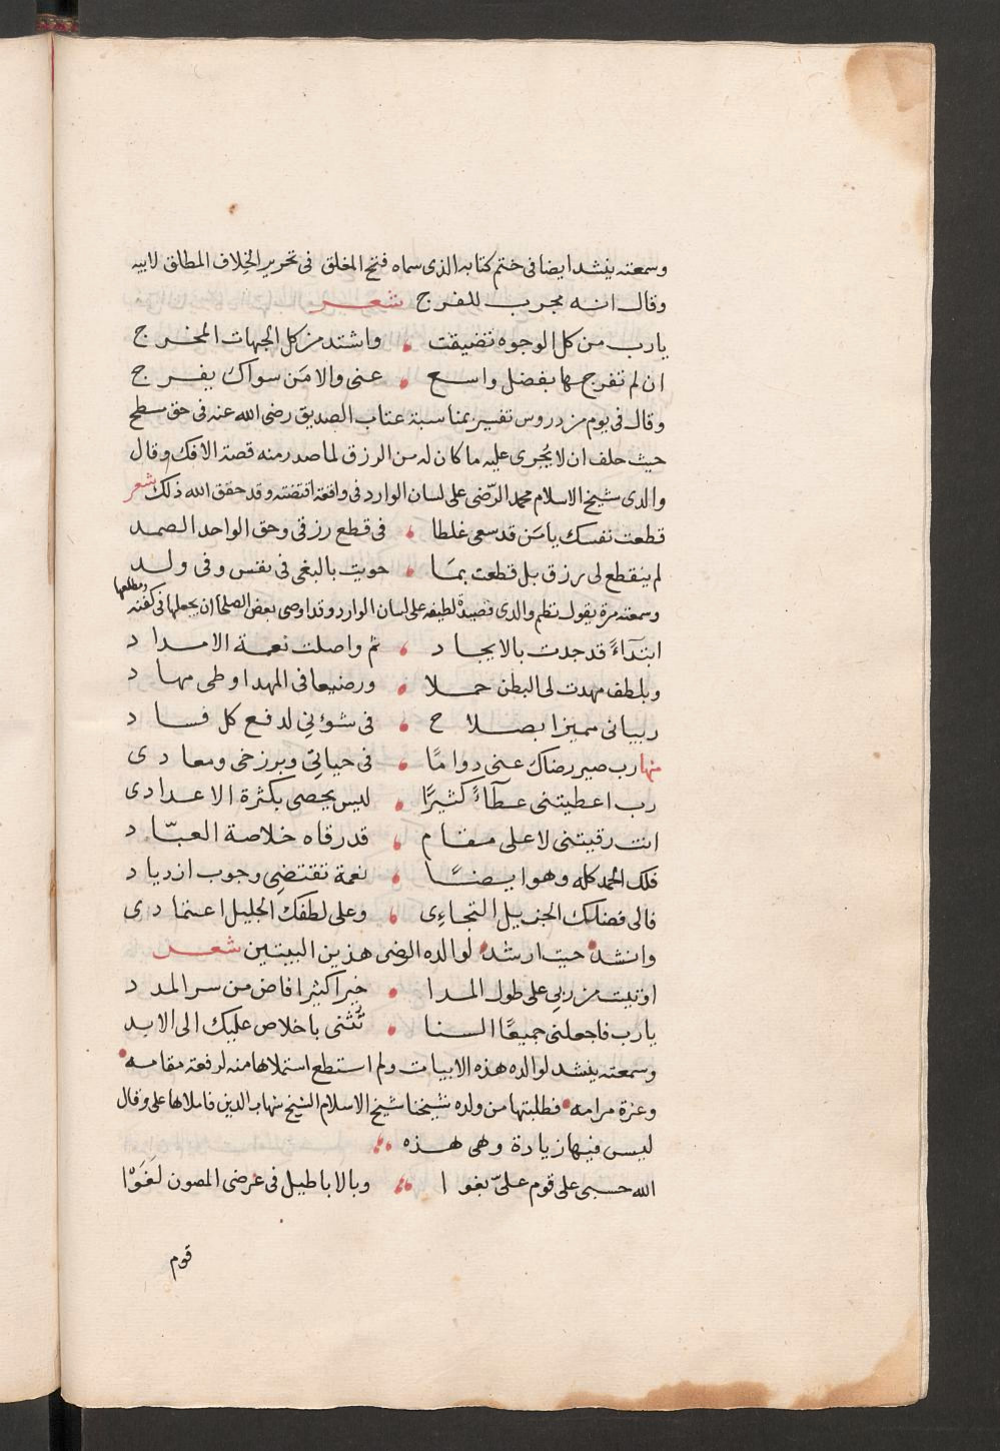 وسمعته ينشد ايضا فى ختم كتابه الذى سماه فتح المغلق فى تحرير الخلاف المطلق لابيه
وقال انه مجرب للفرج شعر
يارب من كل الوجوه تضيقت واشتد من كل الجهات المخرج
ان لم تفرجها بفضل واسع عنى والا مَن سواك يفرج
وقال فى يوم من دروس تفسير بمناسبة عتاب الصديق رضى الله عنه فى حق مسطح
حيث حلف ان لا يُجرى عليه ما كان له من الرزق لما صدر منه قصة الافك وقال
والدى شيخ الاسلام محمد الرّضى على لسان الوارد فى واقعة اقتضته وقد حقق الله ذلك شعر
قطعت نفسك يا مَن قد سعى غلطا فى قطع رزقى وحق الواحد الصمد
لم ينقطع لى رزق بل قطعت بمَا حويت بالبغى فى نفس وفى ولد
وسمعته مرة يقول نظم والدى قصيدة لطيفه على لسان الوارد وقد اوصى بعض الصلحا ان يجعلها فى كفنه ومطلعها
ابتدآءً قد جدت بالايجاد ثم واصلت نعمة الامداد
وبلطف مهدت لى البطن حملا ورضيعا فى المهد اوطى مهاد
ربيانى مميزا بصلاح فى شوٴنى لدفع كل فساد
منها رب صير رضاك عنى دوامًا فى حياتى وبرزخى ومعادى
رب اعطيتنى عطآءً كثيرًا ليس يحصى بكثرة الاعدادى
انت رقيتنى لاعلى مقام قد رقاه خلاصة العبّاد
فلك الحمد كله وهو ايضًا نعمة تقتضى وجوب ازدياد
فالى فضلك الجزيل التجاءِى وعلى لطفك الجليل اعتمادى
وانشد حيث ارشد لوالده الرضى هذين البيتين شعر
اوتيت من ربى على طول المدا خيرا كثيرا فاض من سر المدد
يارب فاجعلنى جميعًا السنا تُثنى باخلاص عليك الى الابد
وسمعته ينشد لوالده هذه الابيات ولم استطع استملاها منه لرفعة مقامه
وعزة مرامه فطلبتها من ولده شيخنا شيخ الاسلام الشيخ شهاب الدين فاملاها على وقال
ليس فيها زيادة وهى هذه
الله حسبى على قوم علىّ بغوا وبالاباطيل فى عرضى المصون لَغَوْا
قوم